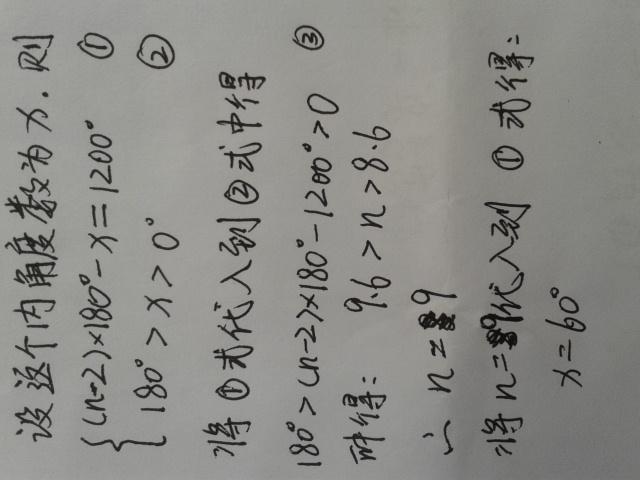 设这个内角度数为x.则
(n-2)×180°-x=1200° ①
180°>x>0° ②
将①式代入到②式中得
180°>(n-2)×180°-1200°>0 ③
解得: 9.6>n>8.6
∴ n=9
将n=9代入到①式得:
x=60°